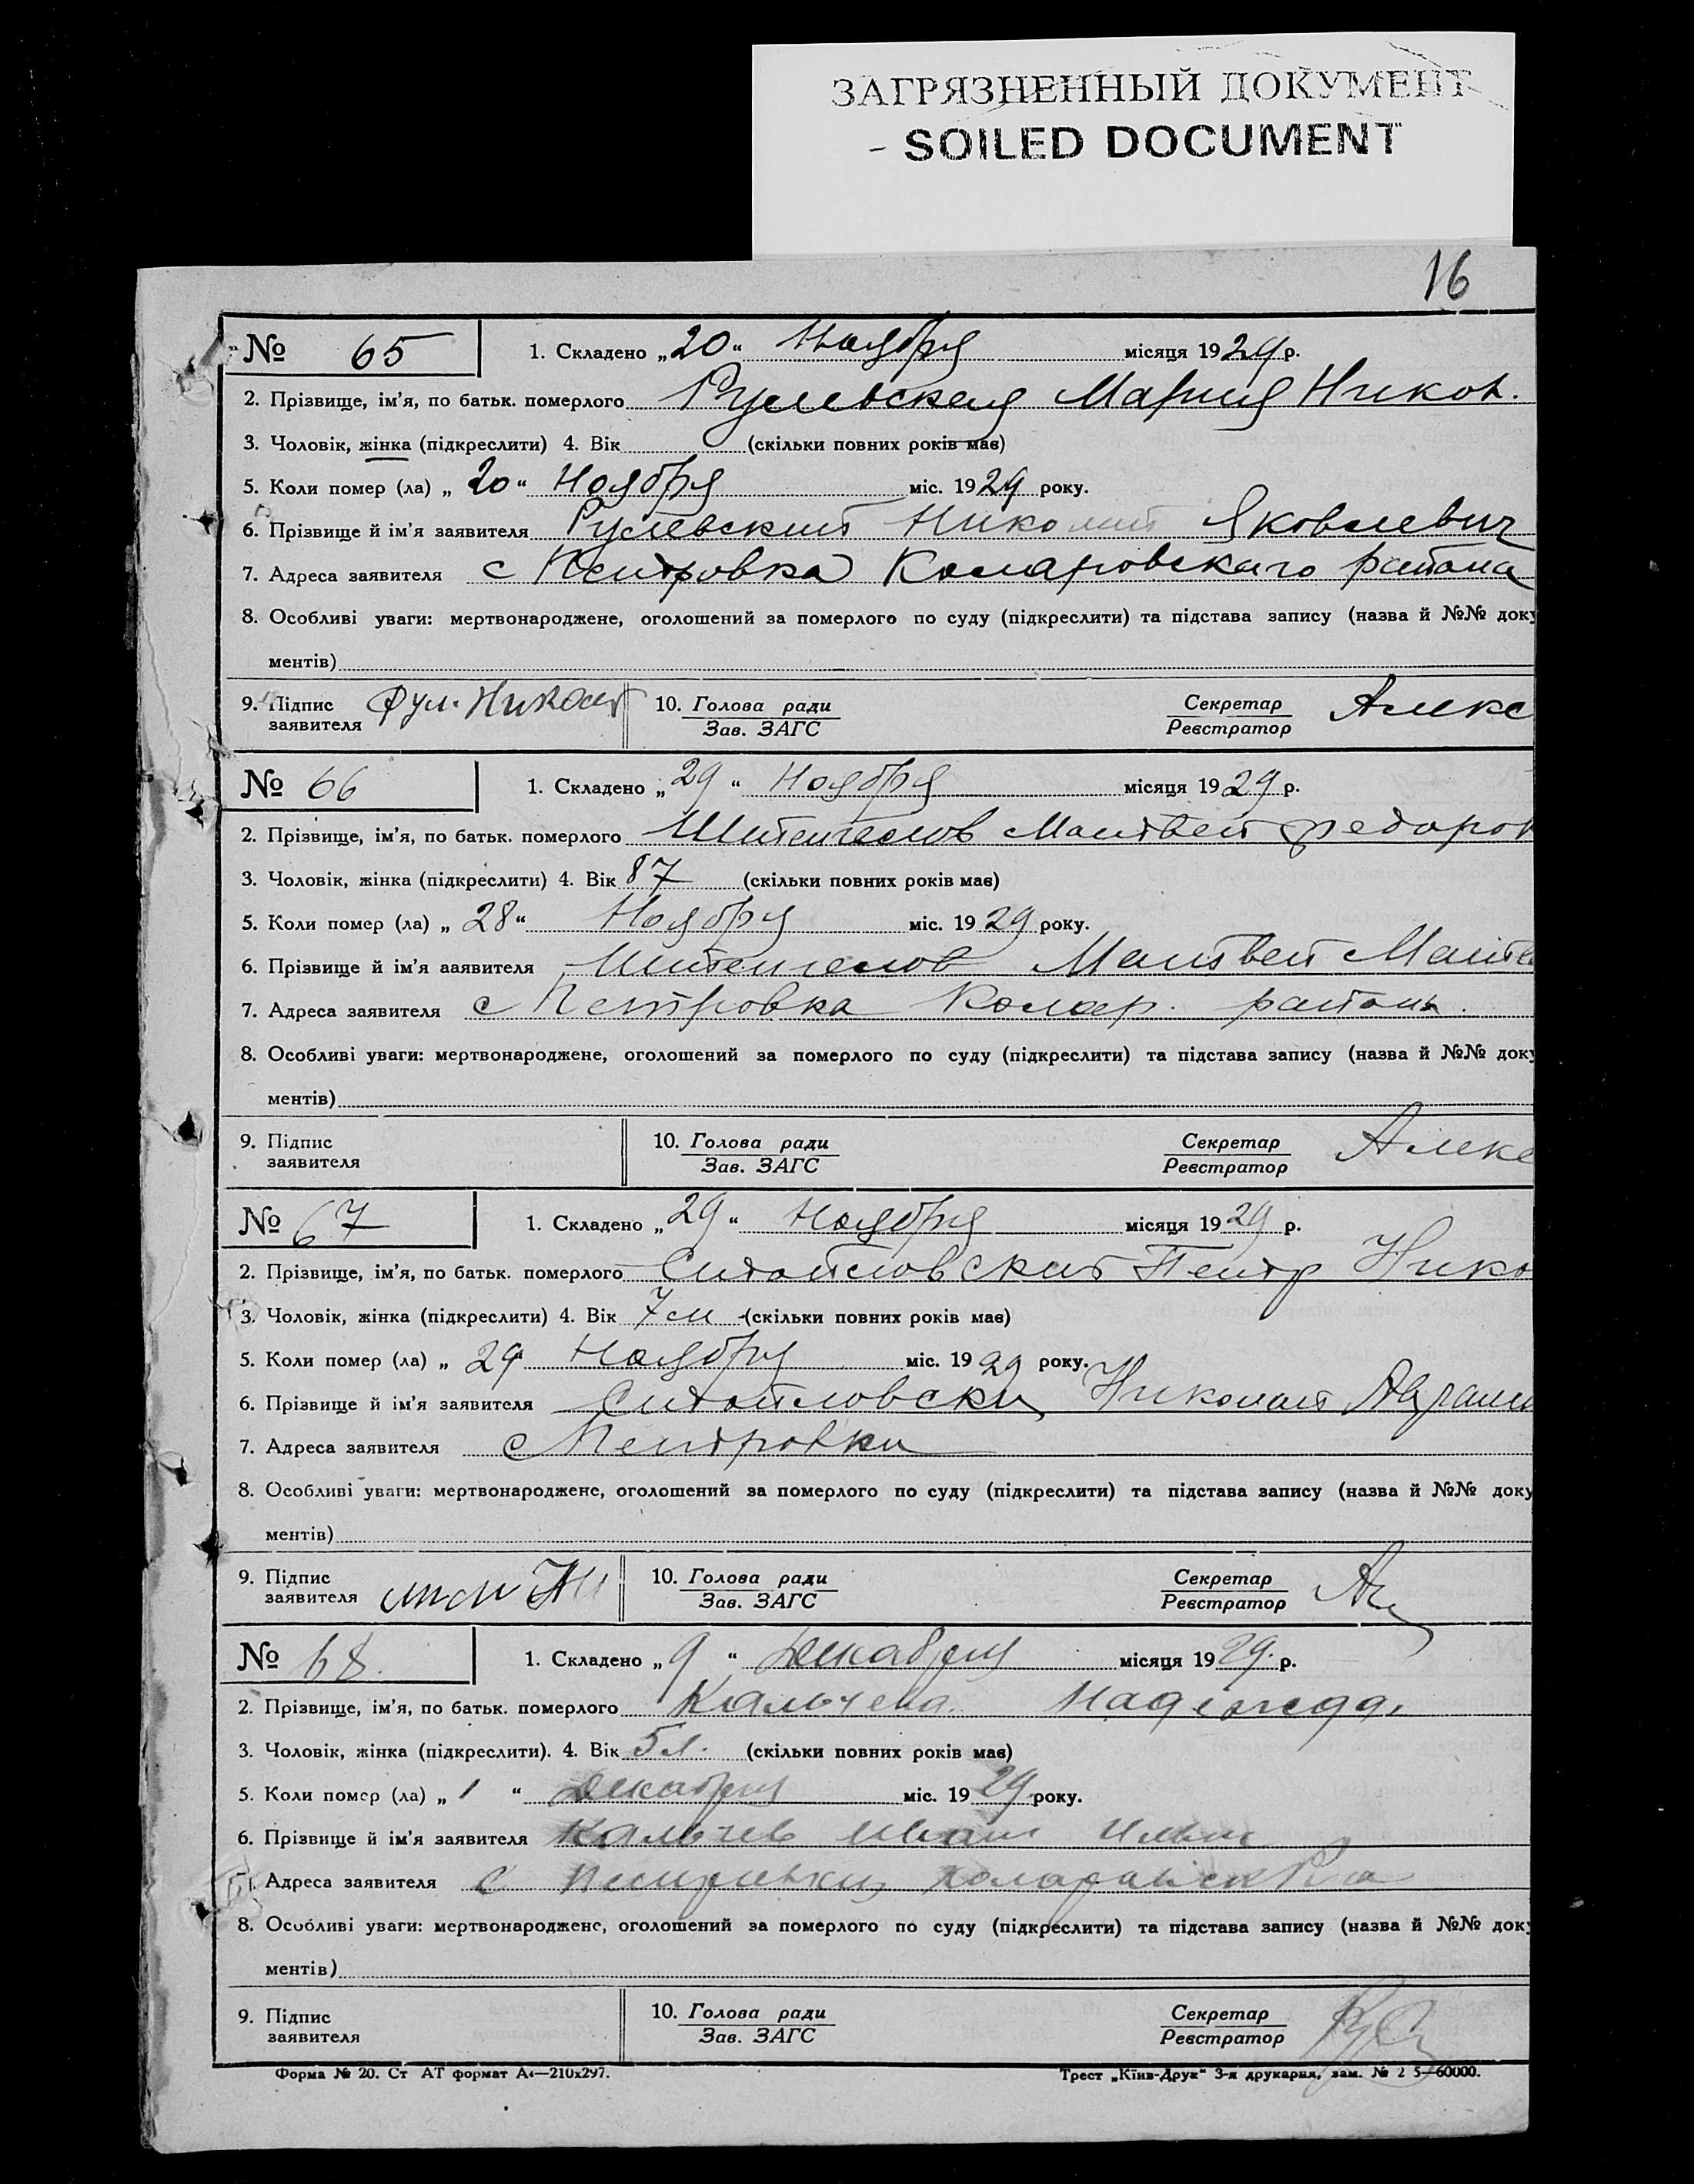 ЗАГРЯЗНЕННЫЙ ДОКУМЕНТ
- SOILED DOCUMENT
16
№ 65 1. Складено „20“ Ноября місяця 1929 р.
2. Прізвище, ім’я, по батьк. померлого Мария Никол.
3. Чоловік, жінка (підкреслити) 4. Вік (скільки повних років має)
5. Коли помер (ла) „20“ Ноября міс. 1929 року.
6. Прізвище й ім’я заявителя Николай Яковлевич
7. Адреса заявителя с Петровка Коларовскаго района
8. Особливі уваги: мертвонароджене, оголошений за померлого по суду (підкреслити) та підстава запису (назва й №№ доку
ментів)
9. Підпис заявителя 10. Голова ради Зав. ЗАГС Секретар Реєстратор Алекс
№ 66 1. Складено „29“ Ноября місяця 1929 р.
2. Прізвище, ім’я, по батьк. померлого Матвей Федоров
3. Чоловік, жінка (підкреслити) 4. Вік 87 (скільки повних років має)
5. Коли помер (ла) „28“ Ноября міс. 1929 року.
6. Прізвище й ім’я заявителя Матвей Матв
7. Адреса заявителя с Петровка Колар. района
8. Особливі уваги: мертвонароджене, оголошений за померлого по суду (підкреслити) та підстава запису (назва й №№ доку
ментів)
9. Підпис заявителя 10. Голова ради Зав. ЗАГС Секретар Реєстратор Алекс
№ 67 1. Складено „29“ Ноября місяця 1929 р.
2. Прізвище, ім’я, по батьк. померлого Петр Нико
3. Чоловік, жінка (підкреслити) 4. Вік 7 м (скільки повних років має)
5. Коли помер (ла) „29“ Ноября міс. 1929 року.
6. Прізвище й ім’я заявителя Николай
7. Адреса заявителя с Петровка
8. Особливі уваги: мертвонароджене, оголошений за померлого по суду (підкреслити) та підстава запису (назва й №№ доку
ментів)
9. Підпис заявителя 10. Голова ради Зав. ЗАГС Секретар Реєстратор
№ 68. 1. Складено „9“ Декабря місяця 1929. р.
2. Прізвище, ім’я, по батьк. померлого Кальчева
3. Чоловік, жінка (підкреслити). 4. Вік 5 л. (скільки повних років має)
5. Коли помер (ла) „1“ Декабря міс. 1929 року.
6. Прізвище й ім’я заявителя Кальчев Иван
7. Адреса заявителя с
8. Особливі уваги: мертвонароджене, оголошений за померлого по суду (підкреслити) та підстава запису (назва й №№ доку
ментів)
9. Підпис заявителя 10. Голова ради Зав. ЗАГС Секретар Реєстратор
Форма № 20. Ст АТ формат А4—210х297. Трест „Київ-Друк“ 3-я друкарня, зам. № 2 5—60000.